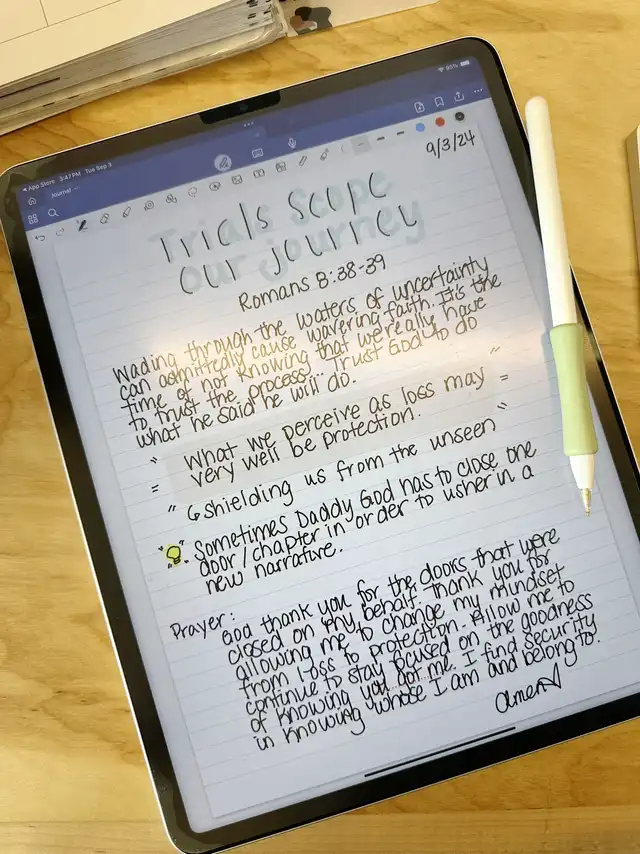 App Store 3:47 PM Tue Sep 3
95%
Journal
9/3/24
Trials Scope
our journey
Romans 8:38-39
Wading through the waters of uncertainty
can admittedly cause wavering faith. It's the
time of not knowing that we really have
to trust the process. Trust God to do
what he said he will do.
" What we perceive as loss may "
= very well be protection. =
" ↳ shielding us from the unseen "
Sometimes Daddy God has to close one
door/chapter in order to usher in a
new narrative.
Prayer:
God thank you for the doors that were
closed on my behalf. Thank you for
allowing me to change my mindset
from loss to protection. Allow me to
continue to stay focused on the goodness
of knowing you got me. I find security
in knowing whose I am and belong to.
amen